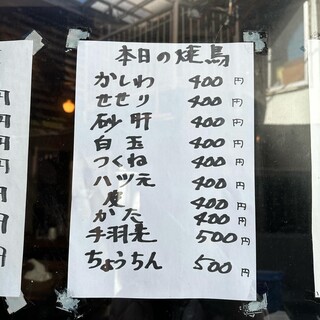 本日の焼鳥
かしわ 400円
せせり 400円
砂肝 400円
白玉 400円
つくね 400円
ハツ元 400円
皮 400円
かた 400円
手羽先 500円
ちょうちん 500円
円
円
円
円
円
円
円
円